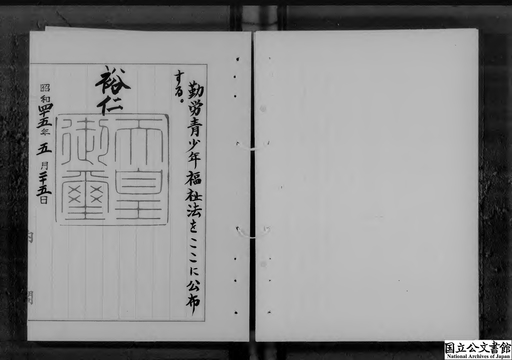 勤労青少年福祉法をここに公布
する。
裕仁
天皇
御璽
昭和四十五年五月二十五日
内閣
国立公文書館
National Archives of Japan